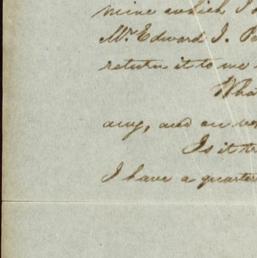 mine which I
Mr. Edward J.
return it to me
Wha
any, and on
Is it
I have a quarter